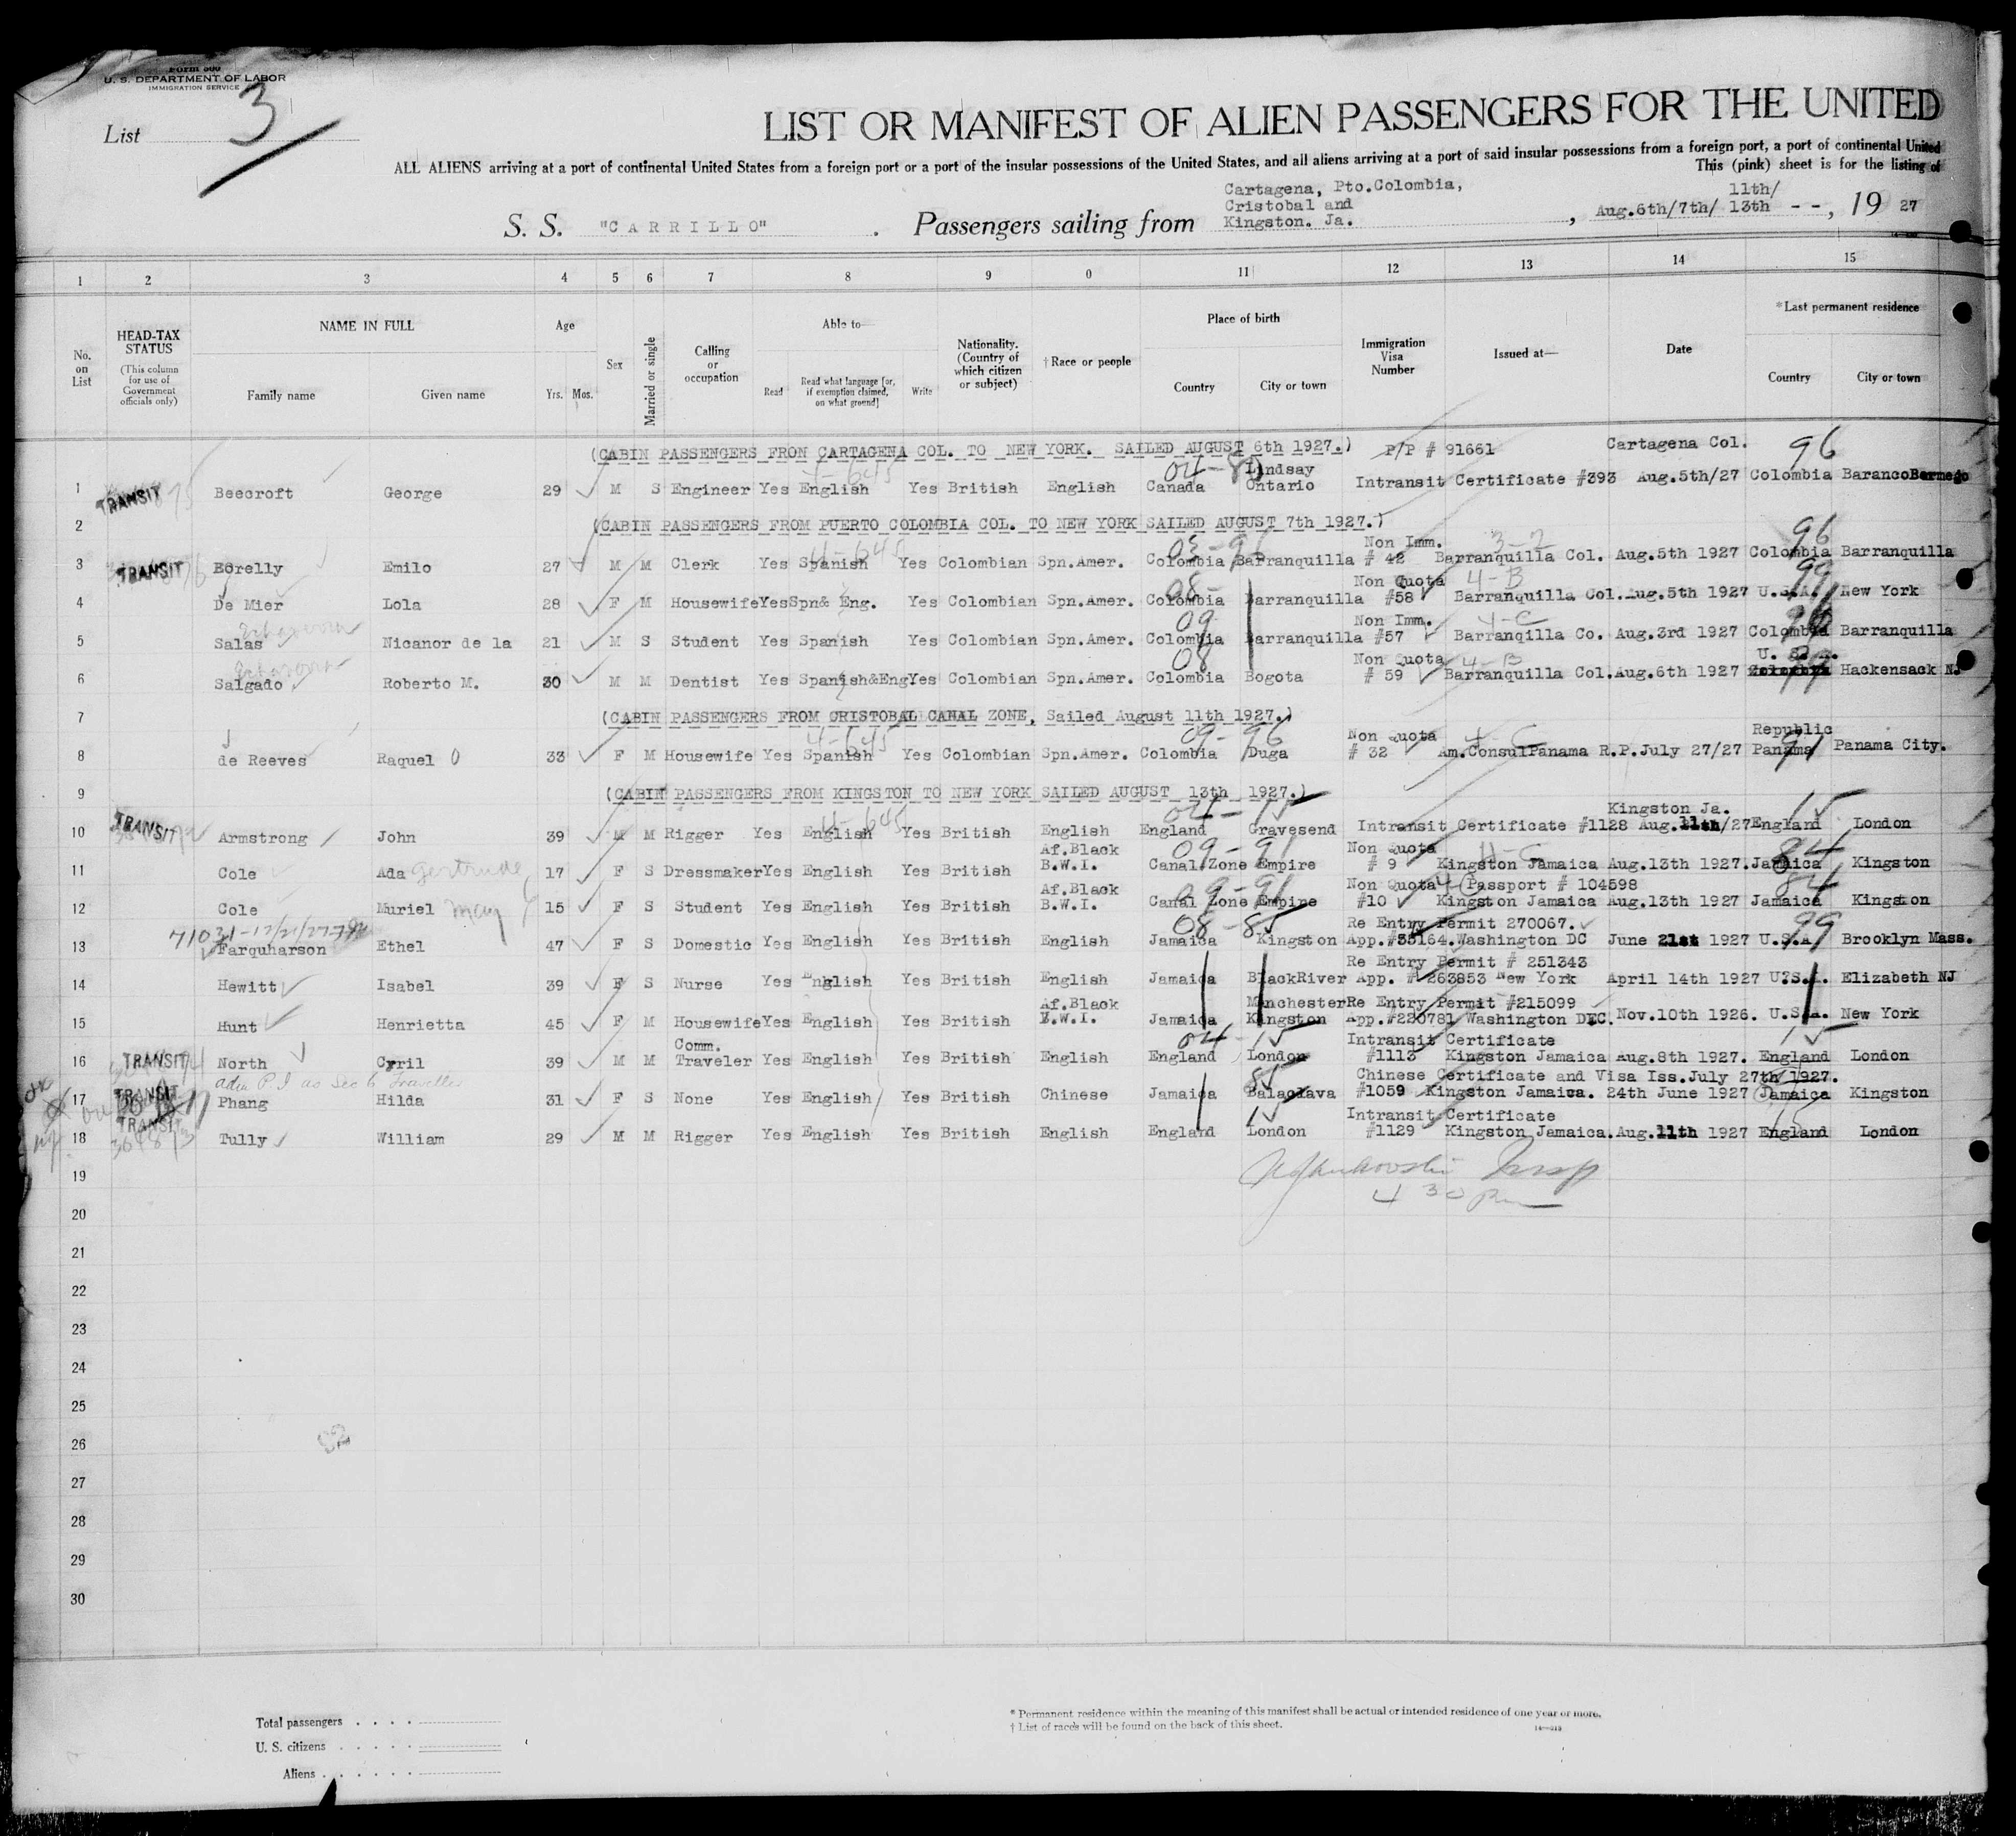 Form 500
U. S. DEPARTMENT OF LABOR
IMMIGRATION SERVICE
List 3
LIST OR MANIFEST OF ALIEN PASSENGERS FOR THE UNITED
ALL ALIENS arriving at a port of continental United States from a foreign port or a port of the insular possessions of the United States, and all aliens arriving at a port of said insular possessions from a foreign port, a port of continental United
This (pink) sheet is for the listing of
S. S. "CARRILLO". Passengers sailing from Cartagena, Pto.Colombia, Cristobal and Kingston. Ja., Aug.6th/7th/ 11th/ 13th - -, 19 27
1 2 3 4 5 6 7 8 9 0 11 12 13 14 15
No. on List
HEAD-TAX STATUS (This column for use of Government officials only)
NAME IN FULL
Family name Given name
Age
Yrs. Mos.
Sex
Married or single
Calling or occupation
Able to—
Read Read what language [or, if exemption claimed, on what ground] Write
Nationality. (Country of which citizen or subject)
† Race or people
Place of birth
Country City or town
Immigration Visa Number
Issued at—
Date
* Last permanent residence
Country City or town
(CABIN PASSENGERS FRON CARTAGENA COL. TO NEW YORK. SAILED AUGUST 6th 1927.) P/P # 91661 Cartagena Col. 96
04-8 Lindsay
1 TRANSIT Beecroft George 29 M S Engineer Yes English Yes British English Canada Ontario Intransit Certificate #393 Aug.5th/27 Colombia BarancoBermejo
2 (CABIN PASSENGERS FROM PUERTO COLOMBIA COL. TO NEW YORK SAILED AUGUST 7th 1927.) 96
4-645 Non Imm. 3-2
3 TRANSIT Borelly Emilo 27 M M Clerk Yes Spanish Yes Colombian Spn.Amer. Colombia Barranquilla # 42 Barranquilla Col. Aug.5th 1927 Colombia Barranquilla
08- Non Quota 4-B 99
4 De Mier Lola 28 F M Housewife Yes Spn& Eng. Yes Colombian Spn.Amer. Colombia Barranquilla #58 Barranquilla Col. Aug.5th 1927 U.S.A. New York
09 Non Imm. 4-C
5 Salas Nicanor de la 21 M S Student Yes Spanish Yes Colombian Spn.Amer. Colombia Barranquilla #57 Barranqilla Co. Aug.3rd 1927 Colombia Barranquilla
08 Non Quota 4-B U. S. A.
6 Salgado Roberto M. 30 M M Dentist Yes Spanish&Eng Yes Colombian Spn.Amer. Colombia Bogota # 59 Barranquilla Col. Aug.6th 1927 Hackensack NJ
7 (CABIN PASSENGERS FROM CRISTOBAL CANAL ZONE, Sailed August 11th 1927.)
4-645 09-96 Non Quota 4-C Republic
8 de Reeves Raquel O 33 F M Housewife Yes Spanish Yes Colombian Spn.Amer. Colombia Duga # 32 Am.ConsulPanama R.P. July 27/27 Panama 91 Panama City.
9 (CABIN PASSENGERS FROM KINGSTON TO NEW YORK SAILED AUGUST 13th 1927.)
4-645 04-15 Kingston Ja. 15
10 TRANSIT Armstrong John 39 M M Rigger Yes English Yes British English England Gravesend Intransit Certificate #1128 Aug.11th/27 England London
Af.Black 09-91 Non Quota 4-C 84
11 Cole Ada Gertrude 17 F S Dressmaker Yes English Yes British B.W.I. Canal Zone Empire # 9 Kingston Jamaica Aug.13th 1927. Jamaica Kingston
Af.Black 09-91 Non Quota 4-C Passport # 104598 84
12 Cole Muriel May 15 F S Student Yes English Yes British B.W.I. Canal Zone Empire #10 Kingston Jamaica Aug.13th 1927 Jamaica Kingston
08-85 Re Entry Permit 270067. 99
13 Farquharson Ethel 47 F S Domestic Yes English Yes British English Jamaica Kingston App.#35164.Washington DC June 21st 1927 U.S.A. Brooklyn Mass.
Re Entry Permit # 251343
14 Hewitt Isabel 39 F S Nurse Yes English Yes British English Jamaica BlackRiver App. # 263853 New York April 14th 1927 U.S.A. Elizabeth NJ
Af.Black Manchester Re Entry Permit #215099
15 Hunt Henrietta 45 F M Housewife Yes English Yes British B.W.I. Jamaica Kingston App.#220781 Washington DEC. Nov.10th 1926. U.S.A. New York
Comm. 04-15 Intransit Certificate 15
16 TRANSIT North Cyril 39 M M Traveler Yes English Yes British English England London #1113 Kingston Jamaica Aug.8th 1927. England London
Adm P.I as Sec 6 Traveller 85 Chinese Certificate and Visa Iss.July 27th 1927.
17 TRANSIT Phang Hilda 31 F S None Yes English Yes British Chinese Jamaica Balaclava #1059 Kingston Jamaica. 24th June 1927 Jamaica Kingston
TRANSIT 15 Intransit Certificate 15
18 Tully William 29 M M Rigger Yes English Yes British English England London #1129 Kingston Jamaica. Aug.11th 1927 England London
19
4 30 Pm
20
21
22
23
24
25
26
27
28
29
30
Total passengers . . . .
U. S. citizens . . . . .
Aliens . . . . . .
* Permanent residence within the meaning of this manifest shall be actual or intended residence of one year or more.
† List of races will be found on the back of this sheet.